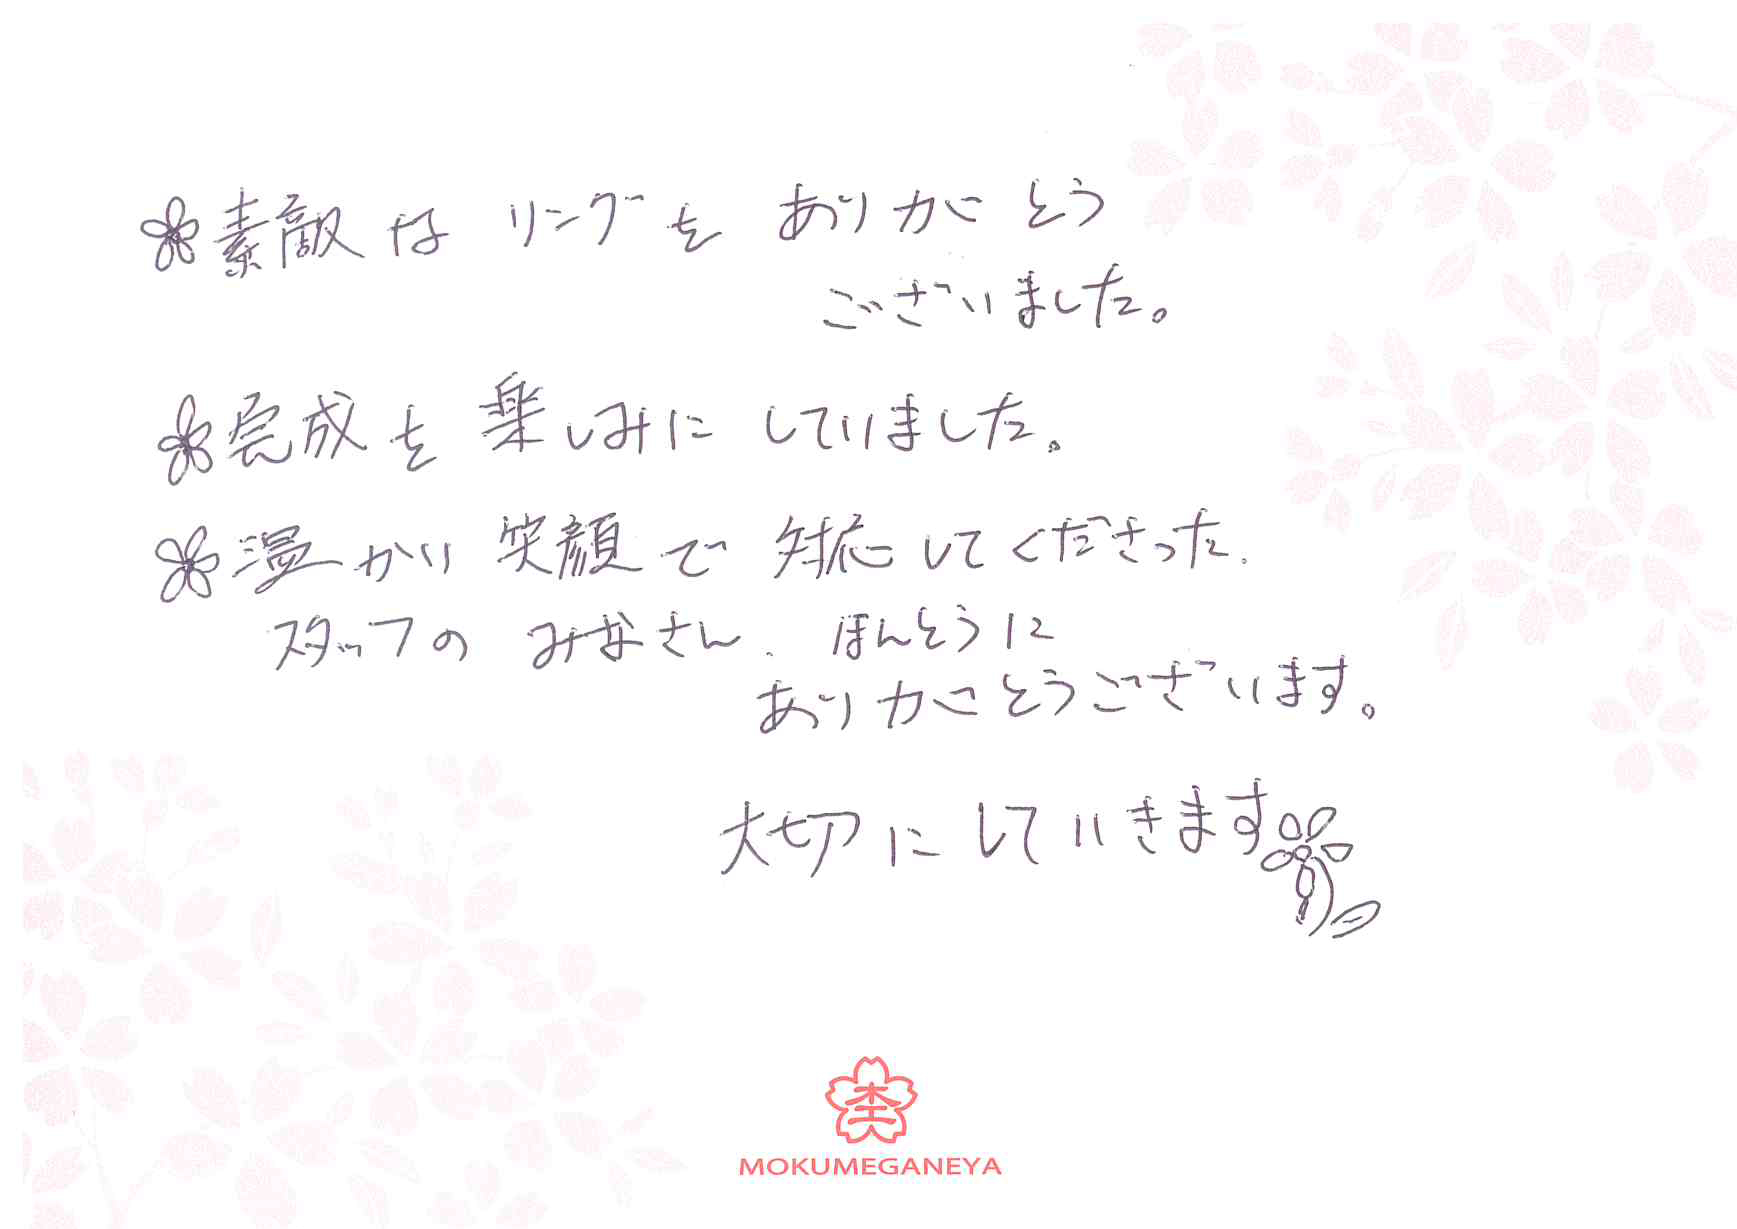 素敵な リングを ありがとう
ございました。
完成を楽しみに していました。
温かい 笑顔で 対応してくださった
スタッフの みなさん、ほんとうに
ありがとうございます。
大切に していきます
MOKUMEGANEYA